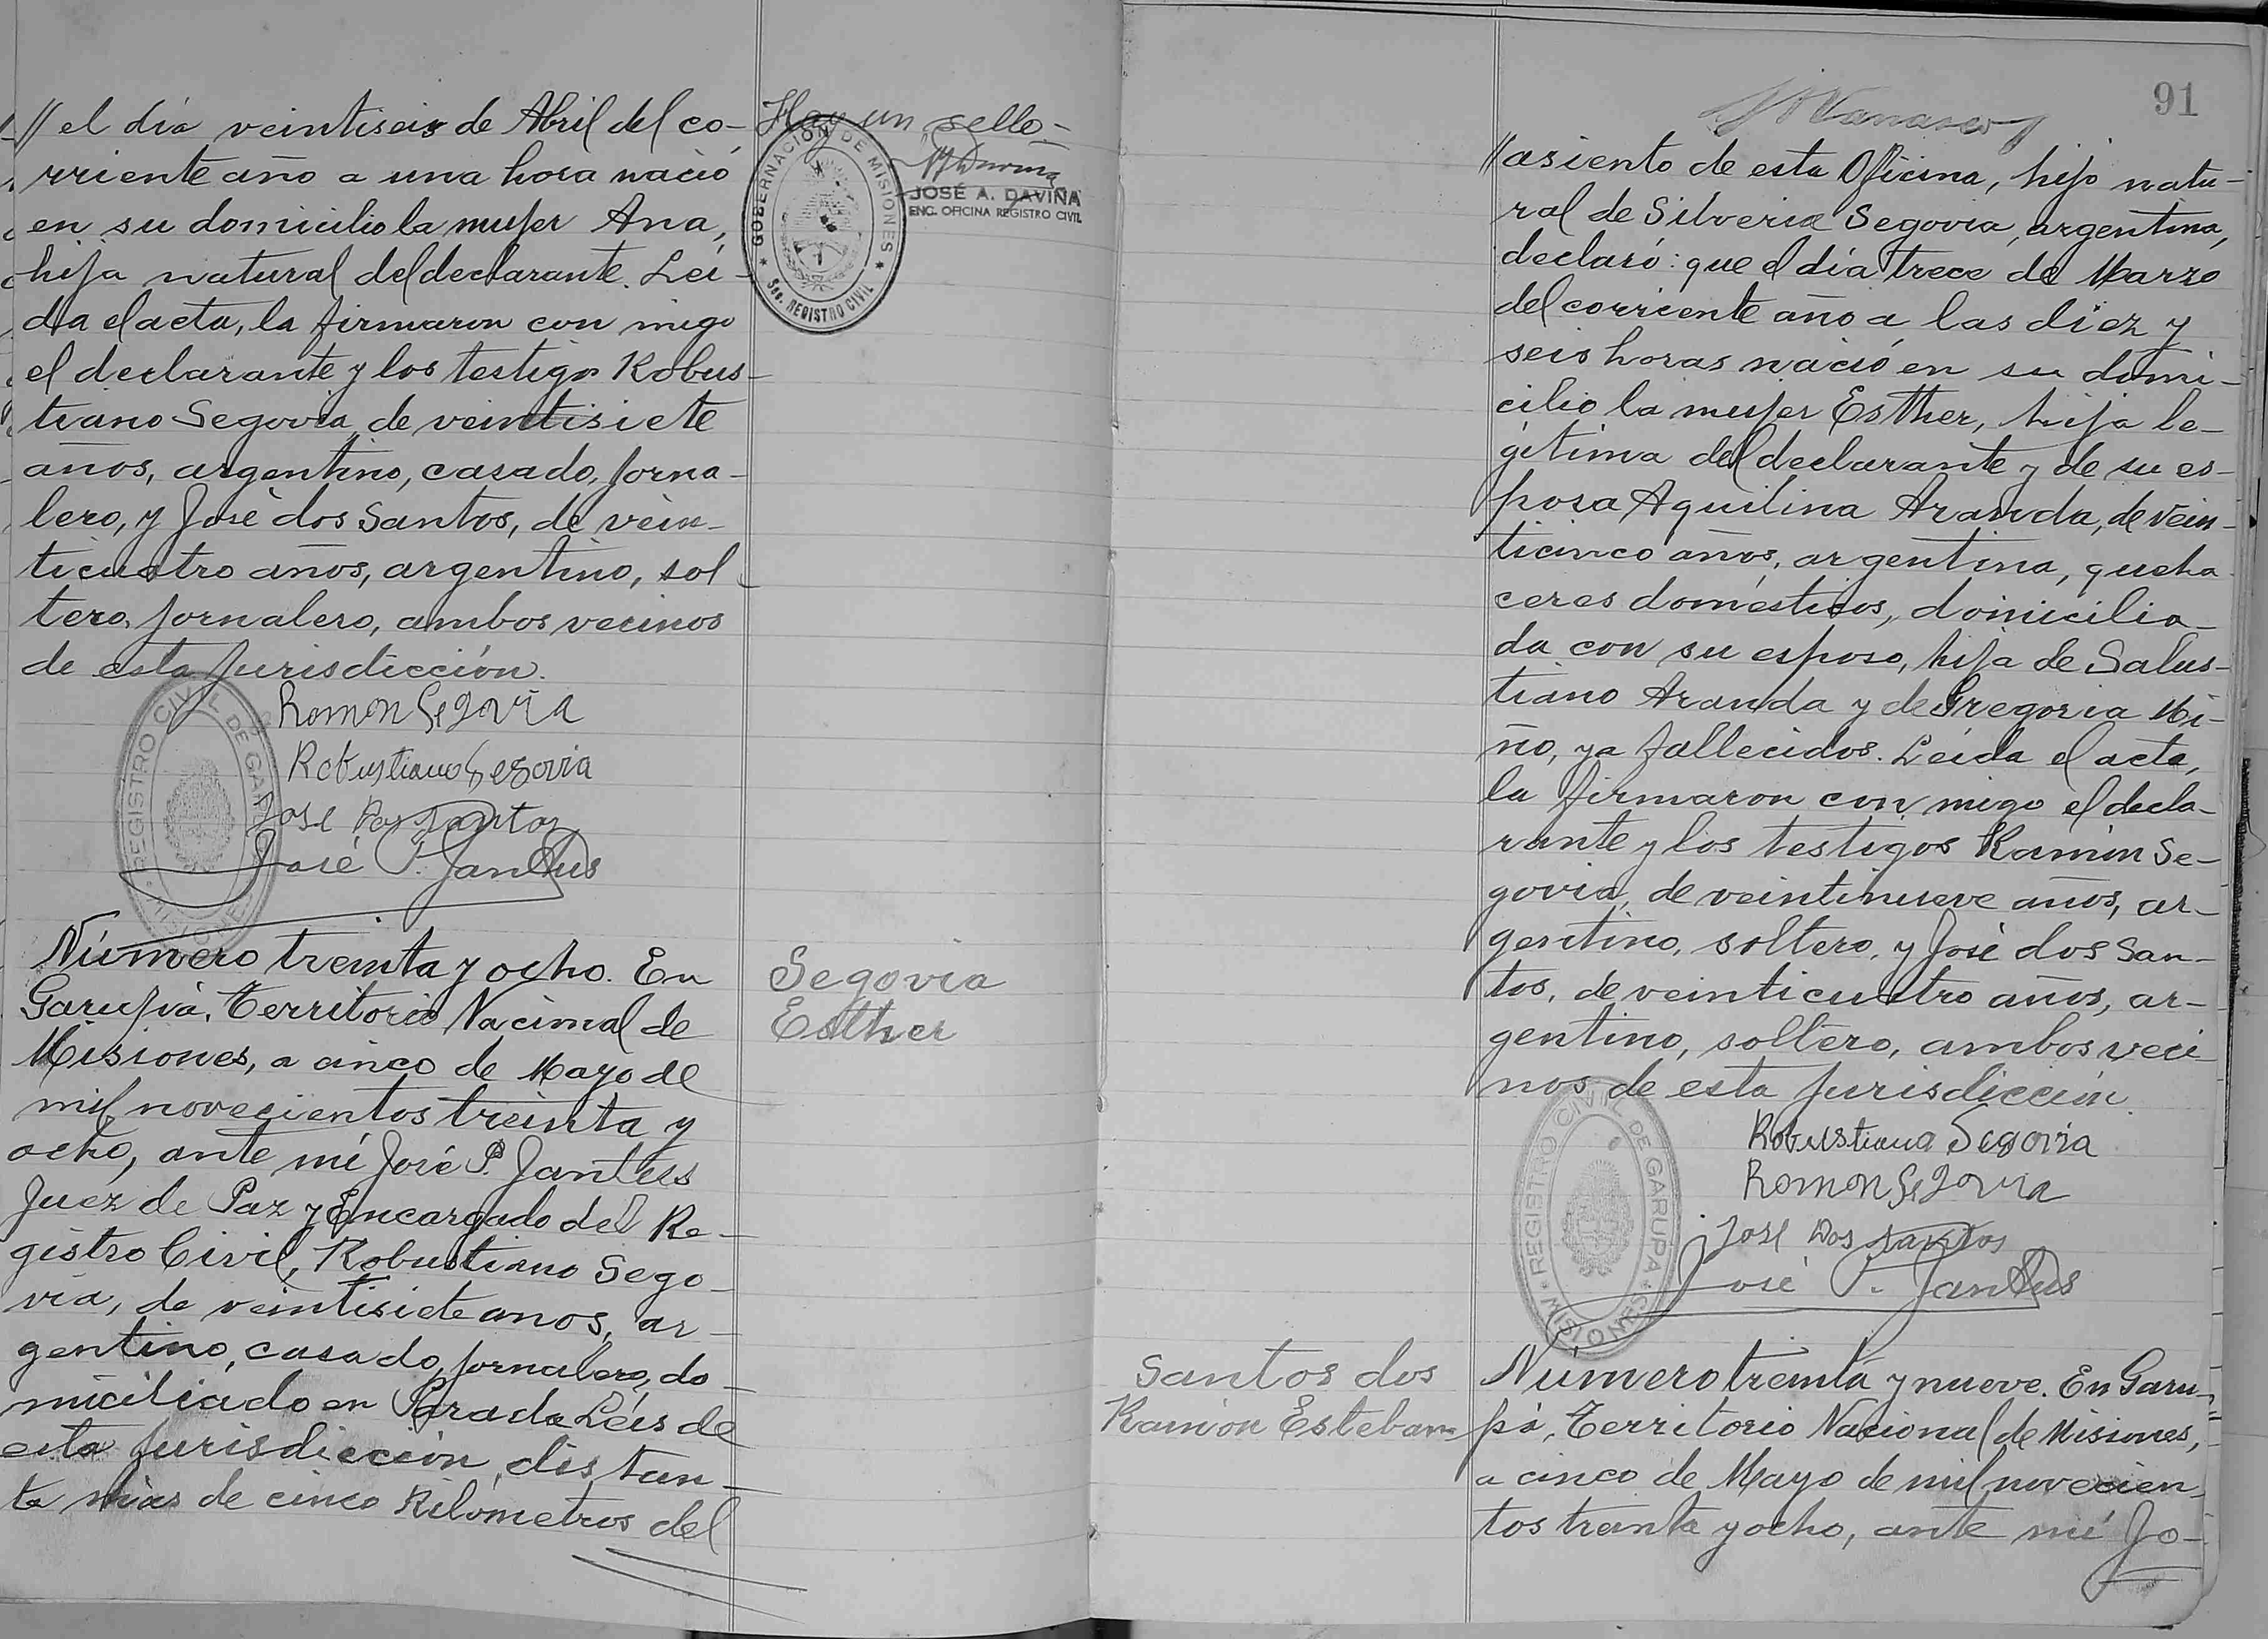 // el día veintiseis de Abril del co-
rriente año a una hora nació
en su domicilio la mujer Ana,
hija natural del declarante. Leí-
da el acta, la firmaron con migo
el declarante y los testigos Robus-
tiano Segovia, de veintisiete
años, argentino, casado, jorna-
lero, y José dos Santos, de vein-
ticuatro años, argentino, sol-
tero, jornalero, ambos vecinos
de esta jurisdicción.
Ramon Segovia
Robustiano Segovia
José Dos Santos
José P. Jantus
REGISTRO CIVIL DE GARUPA
MISIONES
Hay un sello-
GOBERNACIÓN DE MISIONES
Sec. REGISTRO CIVIL
JOSÉ A. DAVIÑA
ENC. OFICINA REGISTRO CIVIL
Número treinta y ocho. En
Garupá, Territorio Nacional de
Misiones, a cinco de Mayo de
mil novecientos treinta y
ocho, ante mí José P. Jantus
Juez de Paz y Encargado del Re-
gistro Civil, Robustiano Sego-
via, de veintisiete anos, ar-
gentino, casado, jornalero, do-
miciliado en Parada Leis de
esta jurisdicción, distan-
te más de cinco Kilómetros del
Segovia
Esther
91
// asiento de esta Oficina, hijo natu-
ral de Silveria Segovia, argentina,
declaró: que el día trece de Marzo
del corriente año a las diez y
seis horas nació en su domi-
cilio la mujer Esther, hija le-
gítima del declarante y de su es-
posa Aquilina Aranda, de vein-
ticinco años, argentina, queha-
ceres domésticos, domicilia-
da con su esposo, hija de Salus-
tiano Aranda y de Gregoria Mi-
ño, ya fallecidos. Leída el acta,
la firmaron con migo el decla-
rante y los testigos Ramón Se-
govia, de veintinueve años, ar-
gentino, soltero, y José dos San-
tos, de veinticuatro años, ar-
gentino, soltero, ambos veci
nos de esta jurisdicción.
Robustiano Segovia
Ramon Segovia
José Dos Santos
José P. Jantus
REGISTRO CIVIL DE GARUPA
MISIONES
Santos dos
Ramón Esteban
Número treinta y nueve. En Garu-
pá, Territorio Nacional de Misiones,
a cinco de Mayo de mil novecien-
tos treinta y ocho, ante mí Jo-